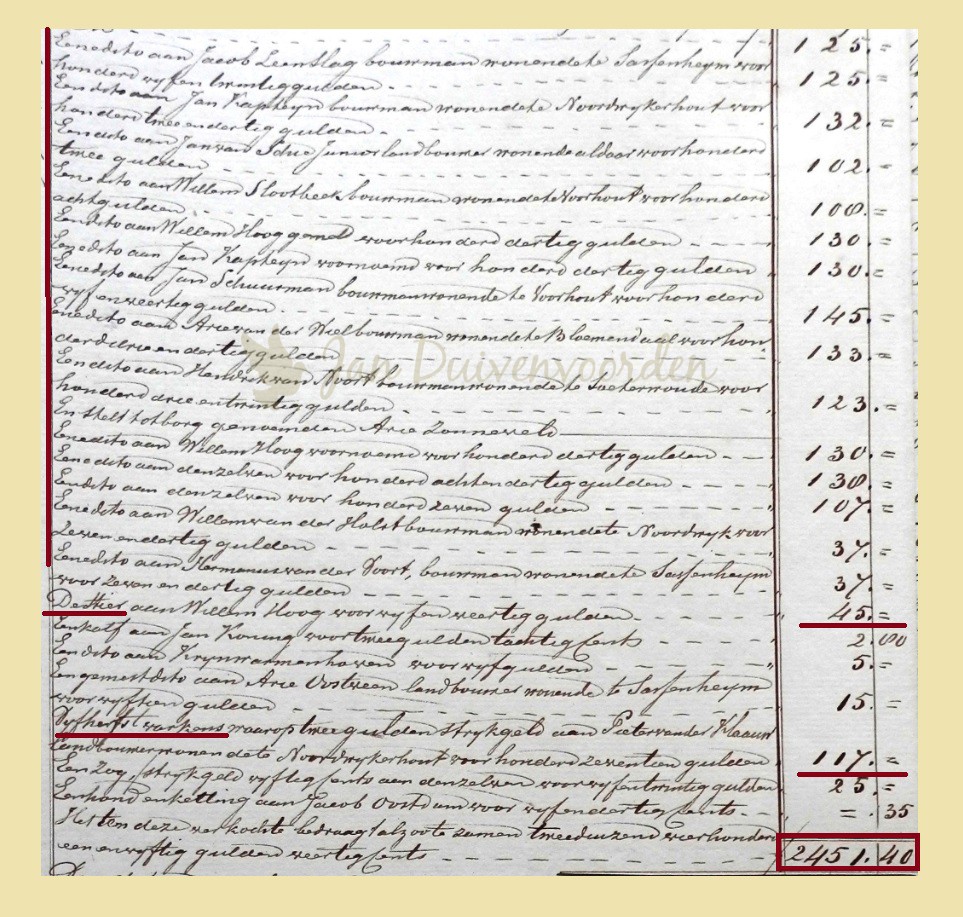 125.=
Eenedito aan Jacob Leenslag bouwman wonende te Sassenheym voor
honderd vyfentwintig gulden 125.=
Een dito aan Jan Kapteyn bouwman wonende te Noordwykerhout voor
honderd twee en dertig gulden 132.=
Een dito aan Jan van Schie Junior landbouwer wonende aldaar voor honderd
twee gulden 102.=
Een dito aan Willem Slootbeek bouwman wonende te Voorhout voor honderd
acht gulden 108.=
Een dito aan Willem Hoog gemeld voor honderd dertig gulden 130.=
Een dito aan Jan Kapteyn voornoemd voor honderd dertig gulden 130.=
Eene dito aan Jan Schuurman bouwman wonende te Voorhout voor honderd
vyfenveertig gulden 145.=
Eene dito aan Arie van der Wiel bouwman wonende te Bloemendaal voor hon
derd drie en dertig gulden 133.=
Jan Duivenvoorden
Een dito aan Hendrik van Noort bouwman wonende te Soeterwoude voor
honderd drie en twintig gulden 123.=
En stelt tot borg genoemden Arie Zonneveld
Eene dito aan Willem Hoog voornoemd voor honderd dertig gulden 130.=
Eene dito aan denzelven voor honderd acht en dertig gulden 138.=
Een dito aan denzelven voor honderd zeven gulden 107.=
Eene dito aan Willem van der Holst bouwman wonende te Noordwyk voor
zeven en dertig gulden 37.=
Eene dito aan Hermanus van der Voort, bouwman wonende te Sassenheym
voor zeven en dertig gulden 37.=
De Stier aan Willem Hoog voor vyf en veertig gulden 45.=
Een kalf aan Jan Koning voor twee gulden tachtig cents 2.80
Een dito aan Kryn Warmenhoven voor vyf gulden 5.=
Een gemest dito aan Arie Oostveen landbouwer wonende te Sassenheym
voor vyftien gulden 15.=
Vyf herfst varkens waarop twee gulden strykgeld aan Pieter van der Klaauw
landbouwer wonende te Noordwykerhout voor honderd zeventien gulden 117.=
Een Zog, strykgeld vyftig cents aan denzelven voor vyfentwintig gulden 25.=
Een hond en ketting aan Jacob Oostdam voor vyfendertig cents =.35
Het ten deze verkochte bedraagt alzoo te zamen tweeduizend vierhonderd
een en vyftig gulden veertig cents 2451.40